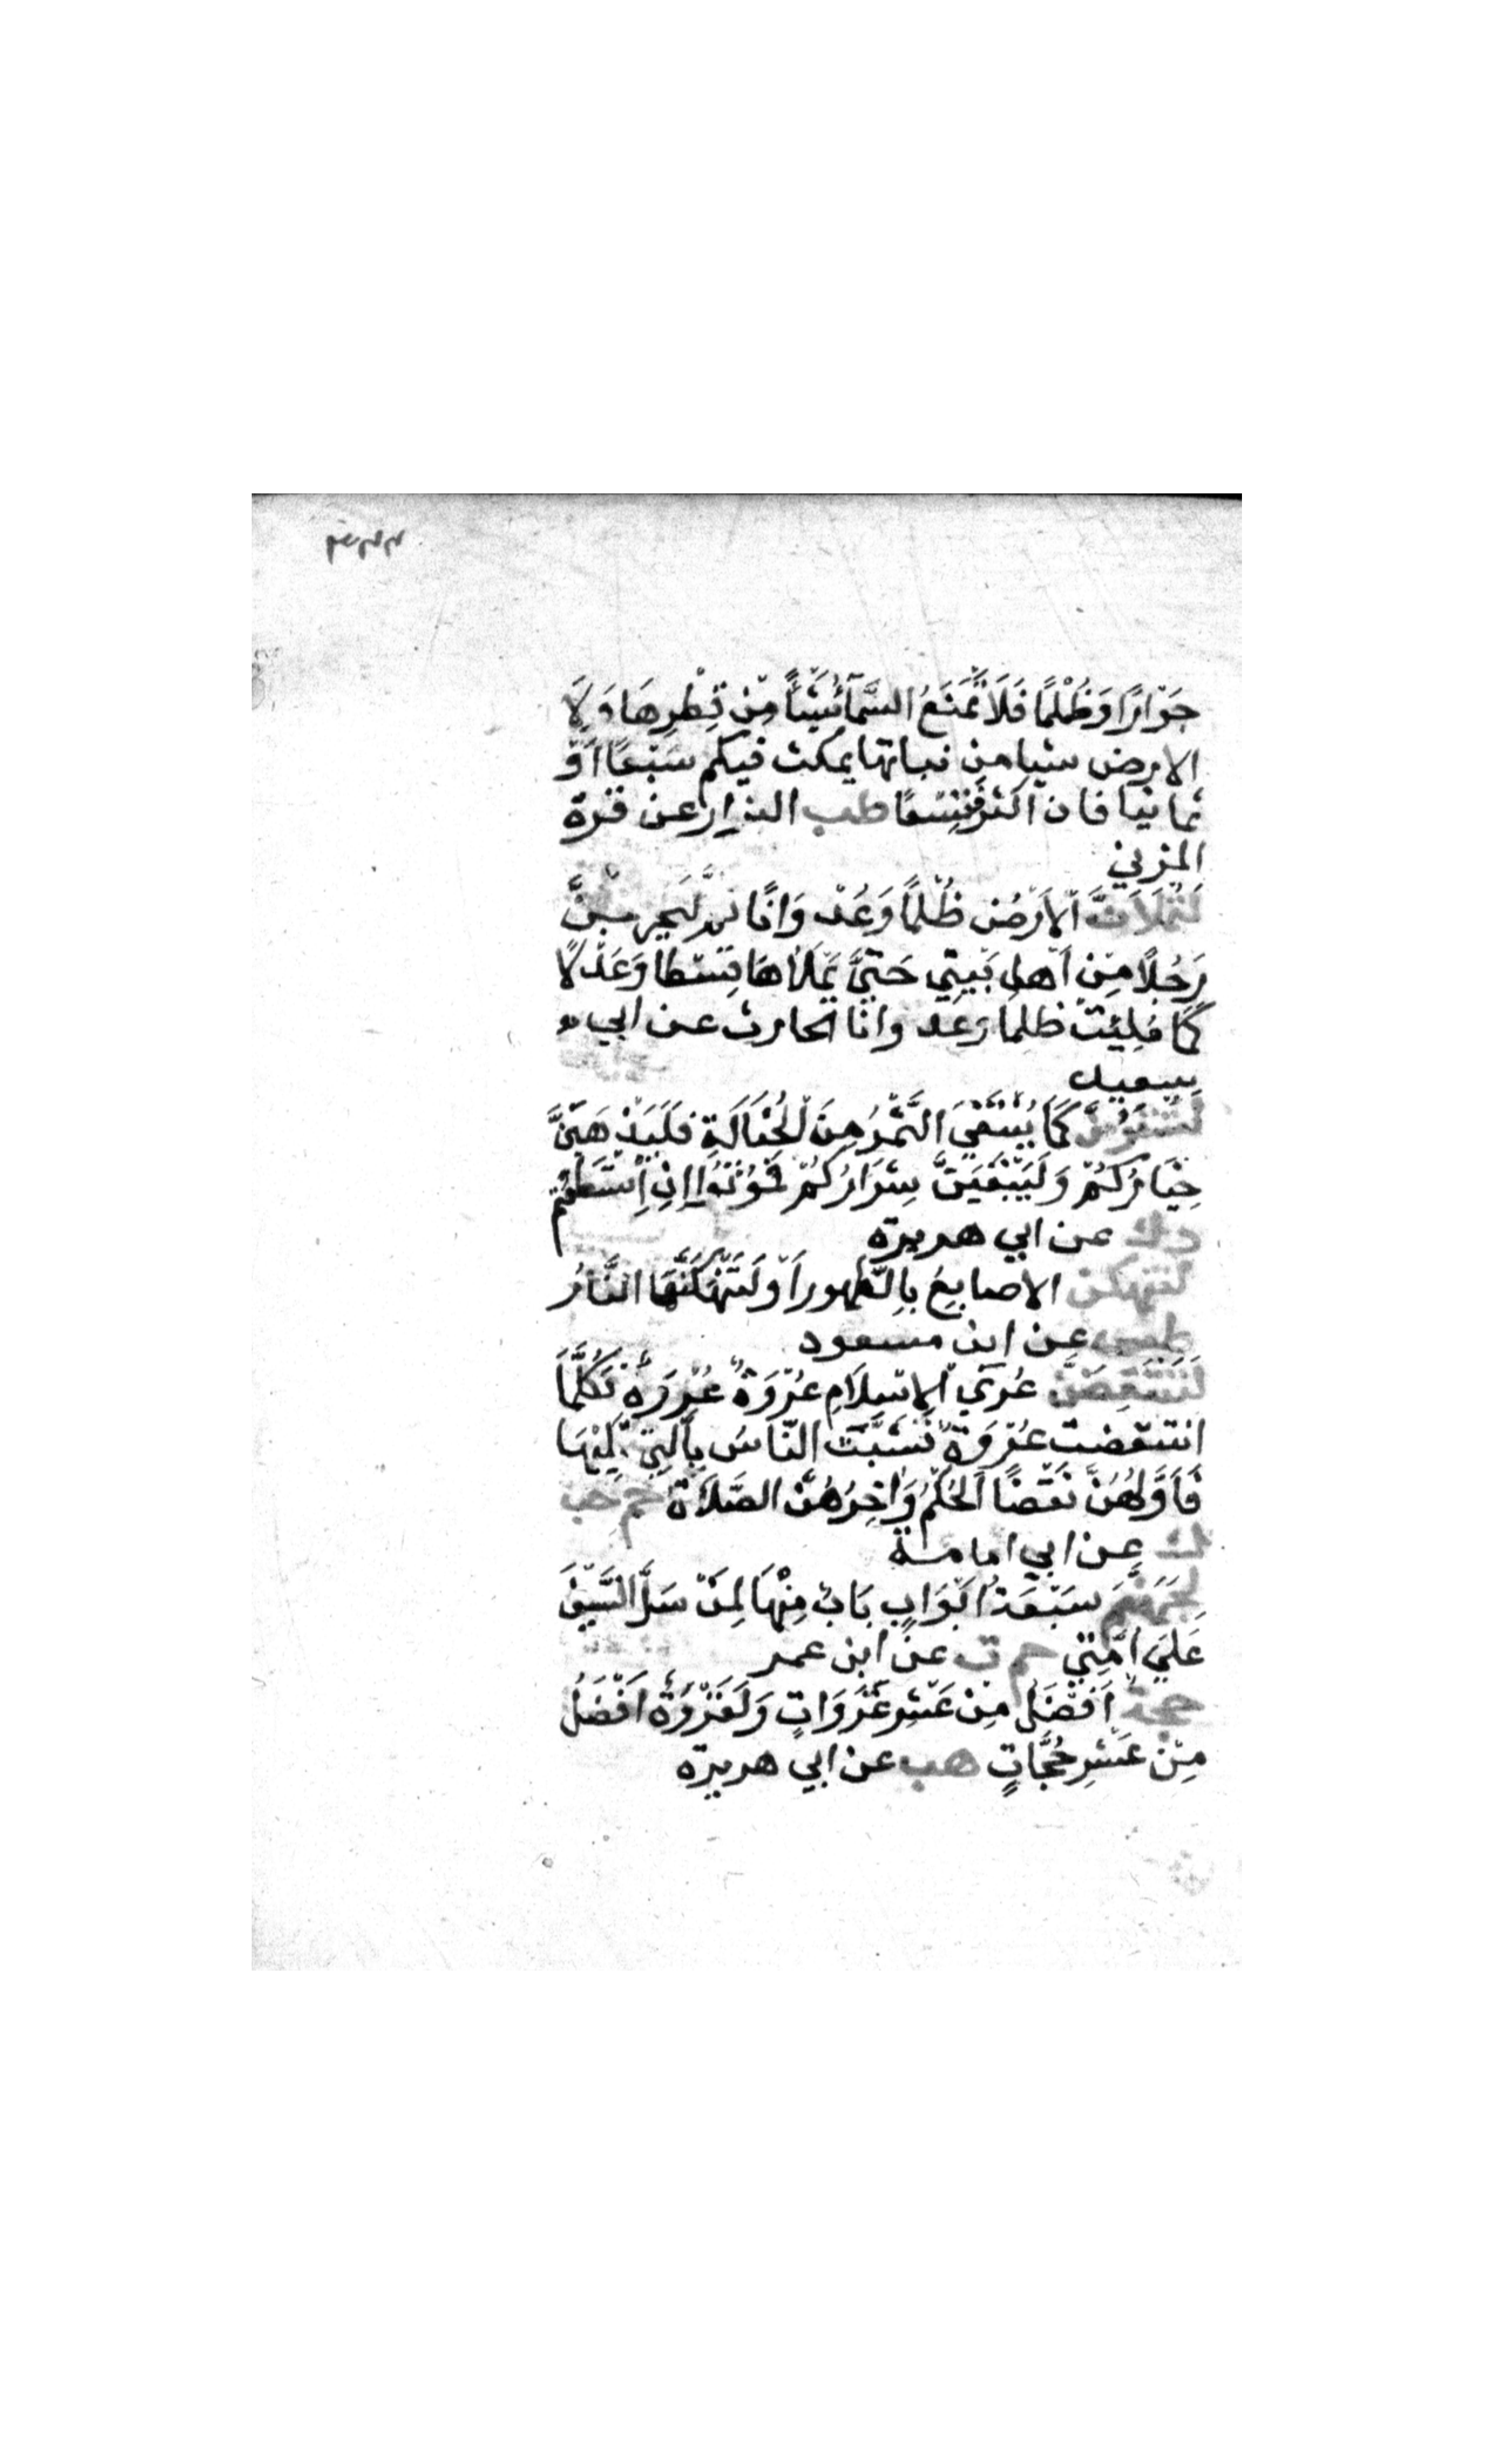 جَوْارًا وَظُلْمًا فَلَا تَمْنَعُ السَّمَآءُ شَيْئًا مِّنْ قِطْرِهَا وَلَا
الارض شيا من نباتها يمكث فيكم سَبْعًا اَوْ
ثمانيا فان اكثر فَتِسْعًا طب البزار عن قرة
المزني
لَتُمْلَاَنَّ الْاَرْضُ ظُلْمًا وَعُدْوَانًا ثم لَيَخْرُجَنَّ
رَجُلًا مِنْ اَهْلِ بَيْتِي حَتَّيَ يَمْلَاُهَا قِسْطا وَعَدْلًا
كَمَا مُلِيَتْ ظلما وعدوانا الحارث عن ابي
سعيد
لَتُنْتَقَوُنَّ كَمَا يُنْتَقَيَ التَّمْرُ مِنَ الْحُثَالَةِ فَلَيَذْهَبَنَّ
خِيَارُكُمْ وَلَيَبْقَيَنَّ شِرَارُكُمْ فَمُوْتُوْا اِنِ اسْتَطَعْتُمْ
ه ك عن ابي هريرة
لتنهكن الاصابِعُ بِالطَّهوراَوْ لَتَنْهَكَنَّهَا النَّارُ
طس عن ابن مسعود
لَتَنْتَقِضَنَّ عُرَي الْاِسْلَامِ عُرْوَةٌ عُرْوَةٌ فَكُلَّمَا
انتقضت عُرْوَةٌ تَشَبَّثَ النَّاسُ بِالَّتِي تَلِيْهَا
فَاَوَّلُهُنَّ نَقْضًا الْحُكْمُ وَاٰخِرُهُنَّ الصَّلَاَةُ حم حب
ك عن ابي امامة
لِجَهَنَّمَ سَبْعَةُ اَبْوَابٍ بَابٌ مِنْهَا لِمَنْ سَلَّ السَّيْفَ
عَلَيَ اُمَّتِي حم ت عن ابن عمر
حجة اَفْضَلُ مِنْ عَشْرِ غَزَوَاتٍ وَلَغَزْوَةٌ اَفْضَلُ
مِنْ عَشْرِ حُجَّاتٍ هب عن ابي هريرة